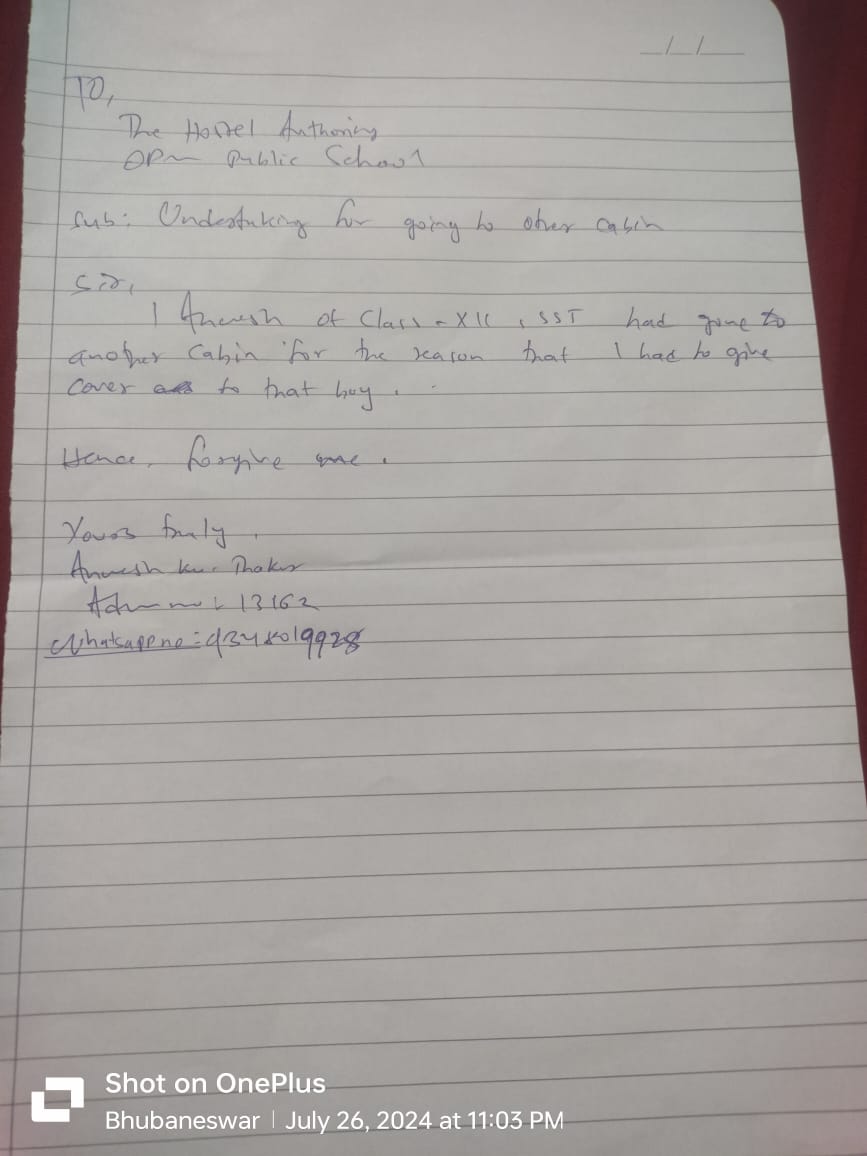 To,
The Hostel Authority
ODM Public School
Sub: Undertaking for going to other cabin
Sir,
I Anwesh of Class - XII, SST had gone to
another Cabin for the reason that I had to give
Cover to that boy.
Hence, forgive me.
Yours truly,
Anwesh Ku. Thakur
Adm no: 13162
Whatsapp no:- 9348019928
Shot on OnePlus
Bhubaneswar | July 26, 2024 at 11:03 PM